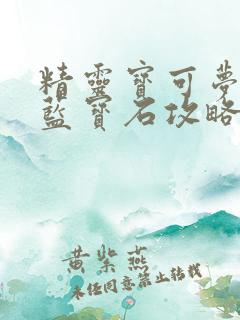 精靈寶可夢
藍寶石攻略
黃紫燕
未经同意禁止转载